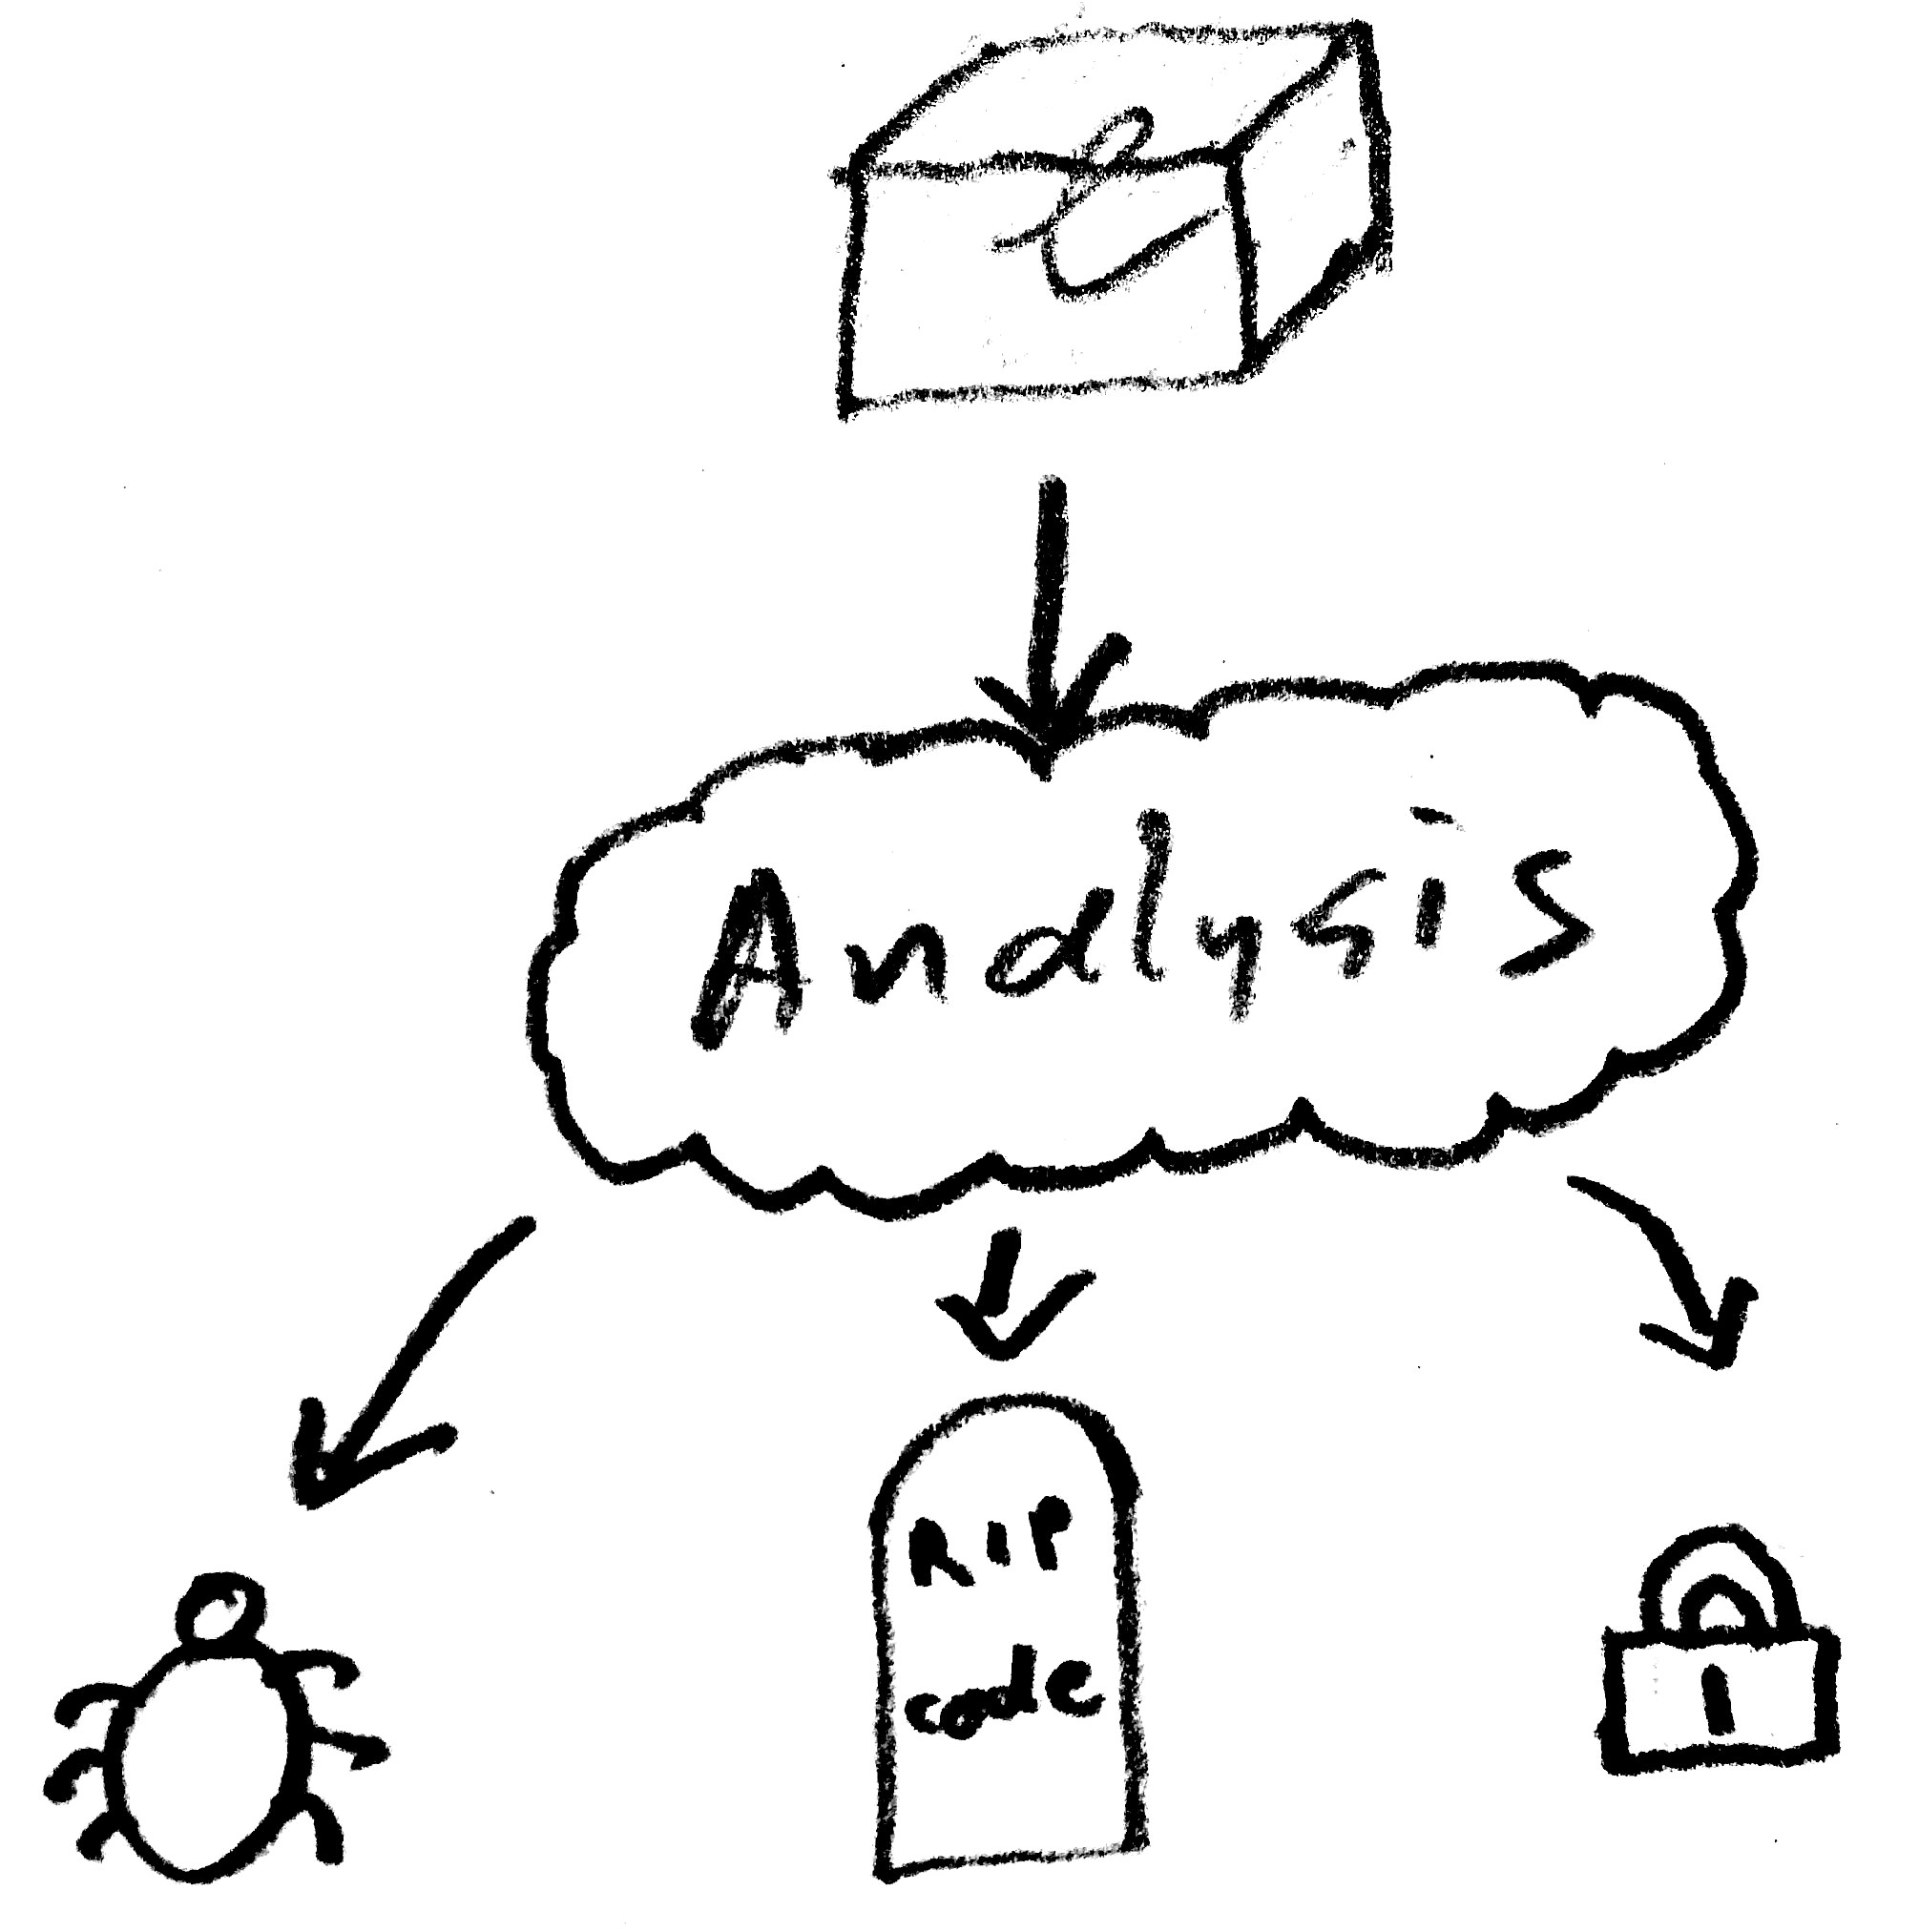 Analysis
RIP
code